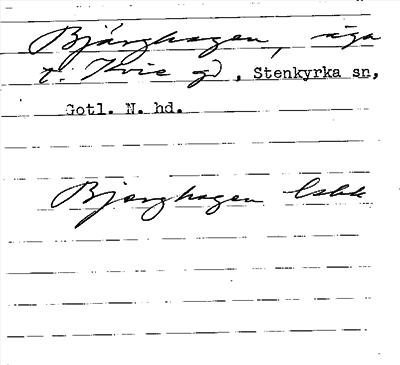 Bjärghagen, äga
t. Kvie gd, Stenkyrka sn,
Gotl. N. hd.
Bjerghagen